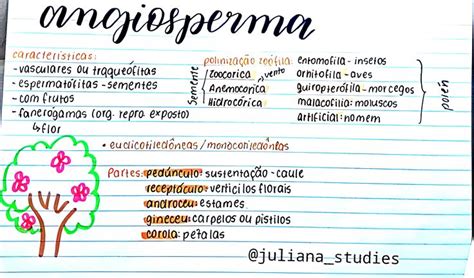 angiosperma
características:
- vasculares ou traqueófitas
- espermatófitas - sementes
- com frutos
- fanerógamas (org. repro exposto)
↳ flor
Semente
polinização zoófila:
Zoocorica
Anemocorica → vento
Hidrocórica
entomofila - insetos
orbitofila - aves
quiropterofila - morcegos
malacofilia: moluscos
artificial: homem
polén
• eudicotiledôneas / monocotiledôneas
Partes: pedúnculo: sustentação - caule
receptáculo: verticilos florais
androceu: estames
gineceu: carpelos ou pistilos
corola: petalas
@juliana_studies